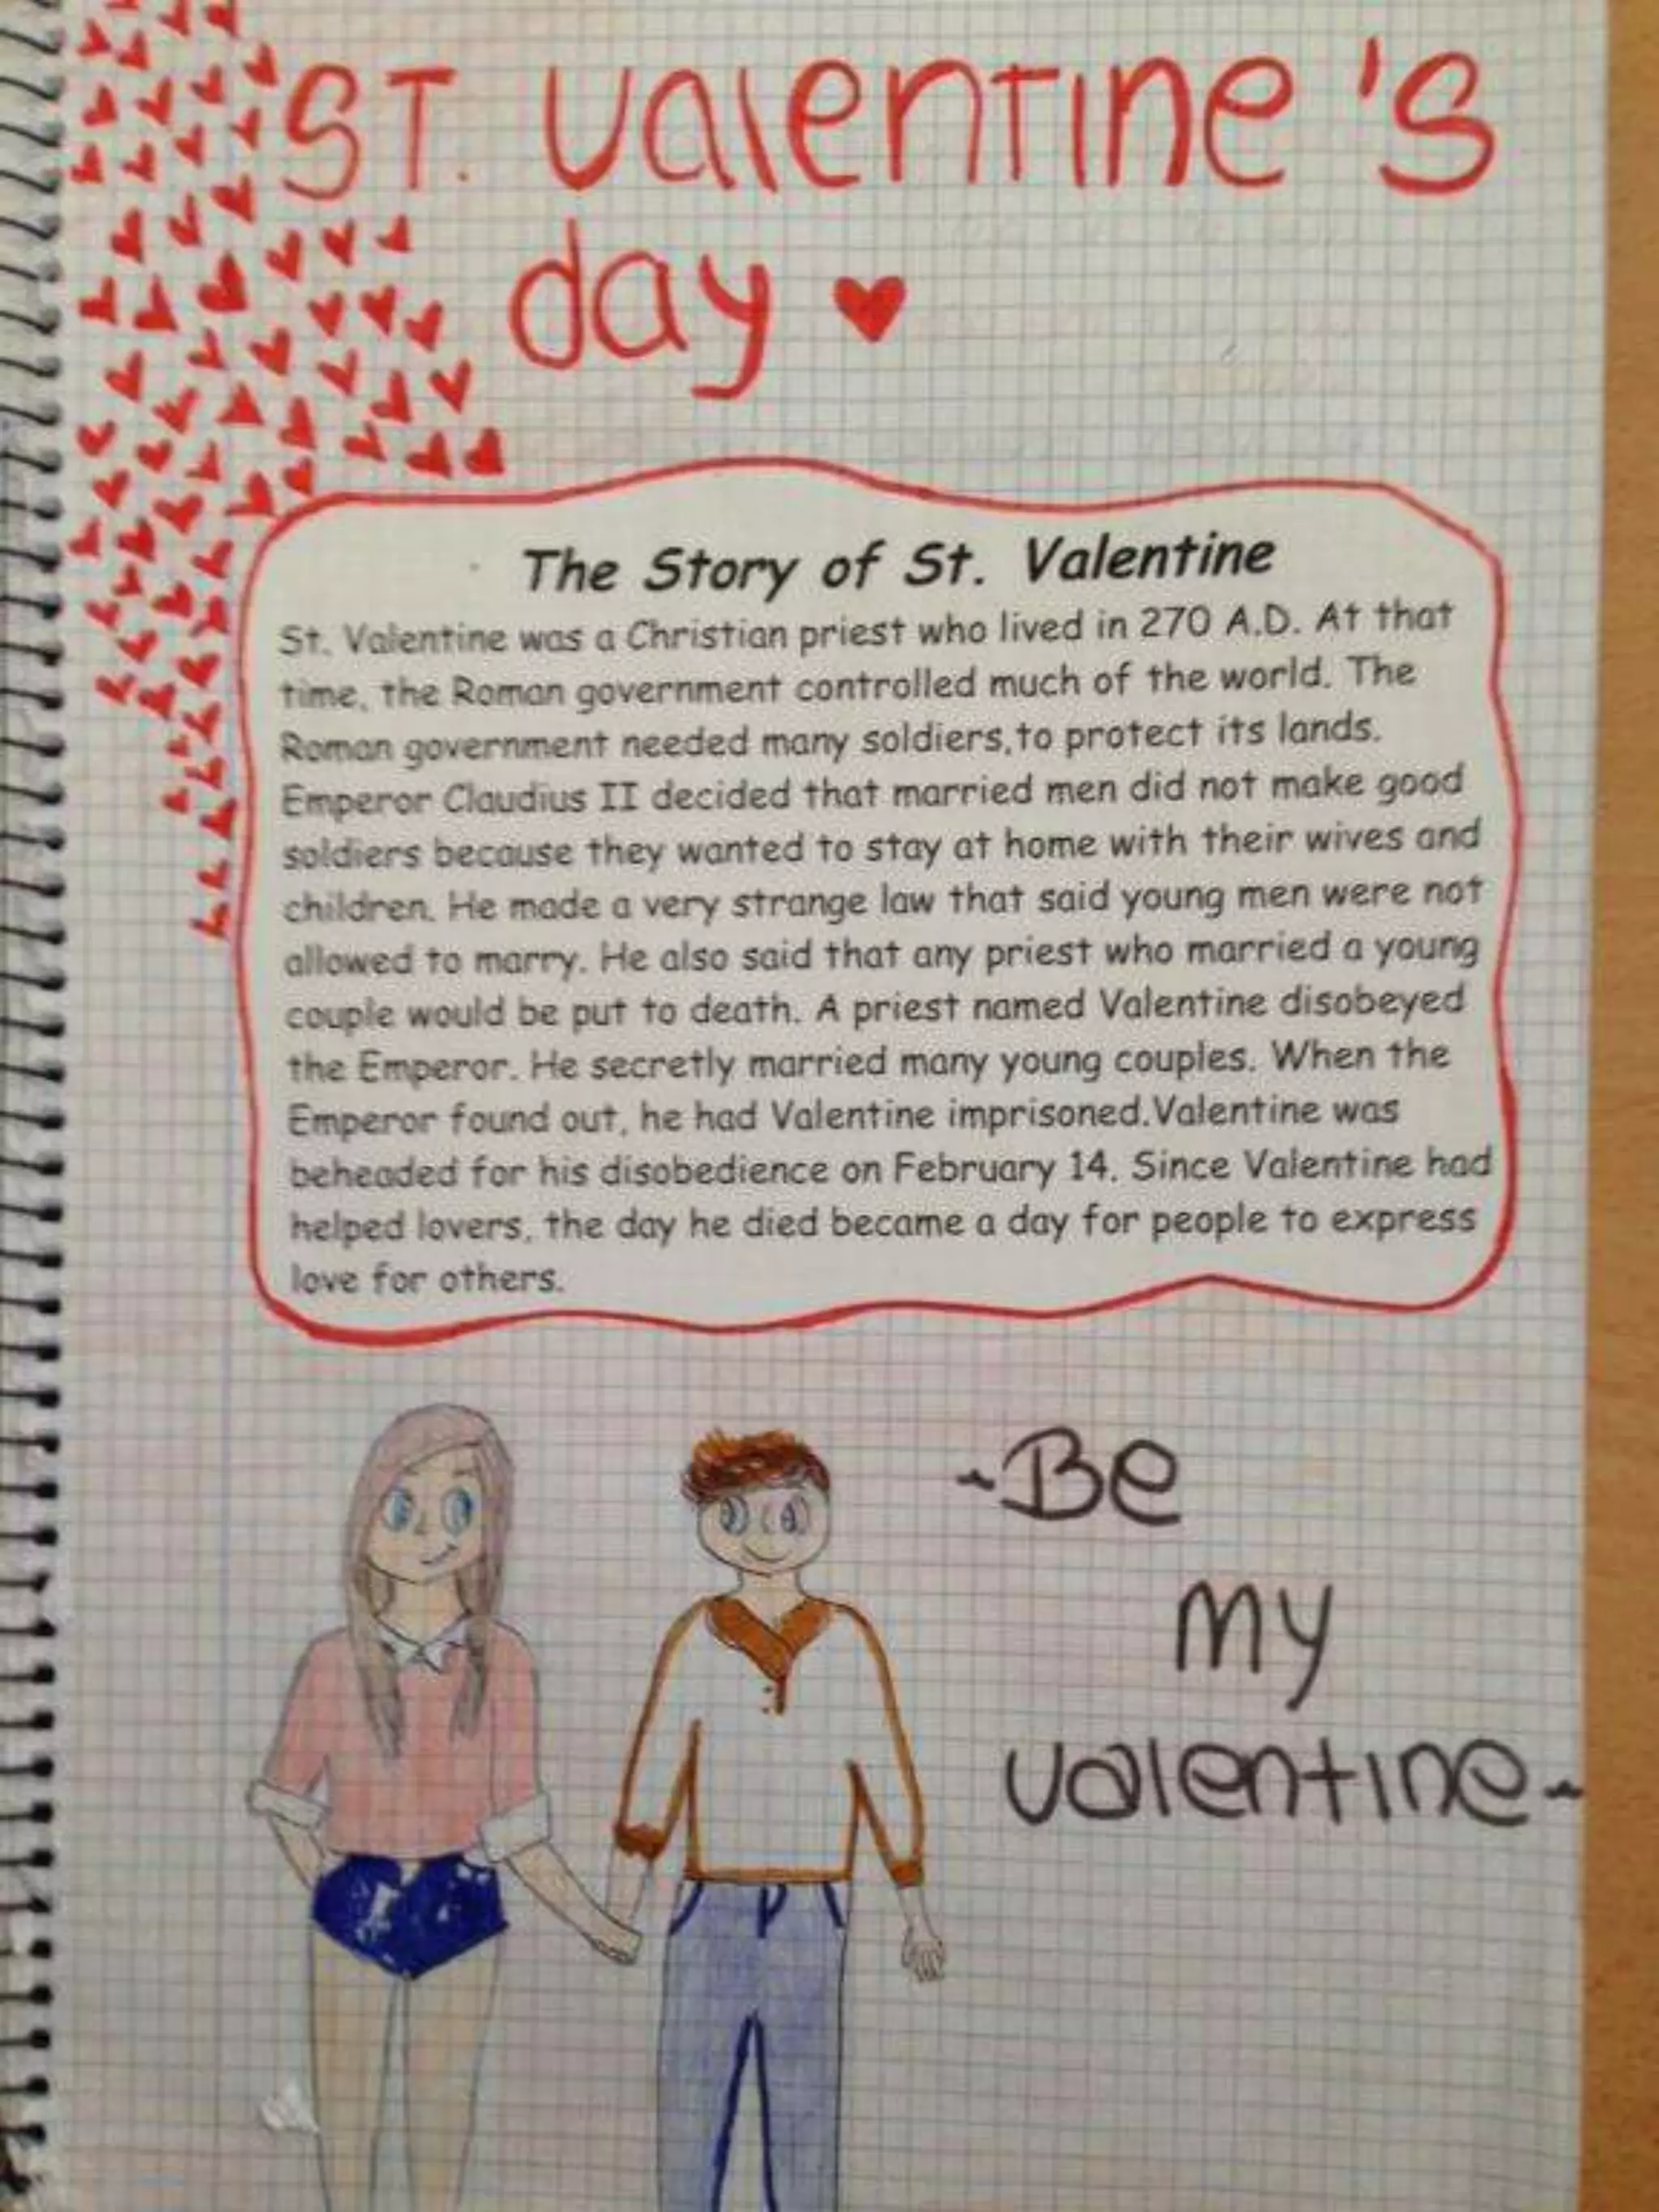 ST. valentine's
day
The Story of St. Valentine
St. Valentine was a Christian priest who lived in 270 A.D. At that
time, the Roman government controlled much of the world. The
Roman government needed many soldiers,to protect its lands.
Emperor Claudius II decided that married men did not make good
soldiers because they wanted to stay at home with their wives and
children. He made a very strange law that said young men were not
allowed to marry. He also said that any priest who married a young
couple would be put to death. A priest named Valentine disobeyed
the Emperor. He secretly married many young couples. When the
Emperor found out, he had Valentine imprisoned.Valentine was
beheaded for his disobedience on February 14. Since Valentine had
helped lovers, the day he died became a day for people to express
love for others.
-Be
my
valentine-